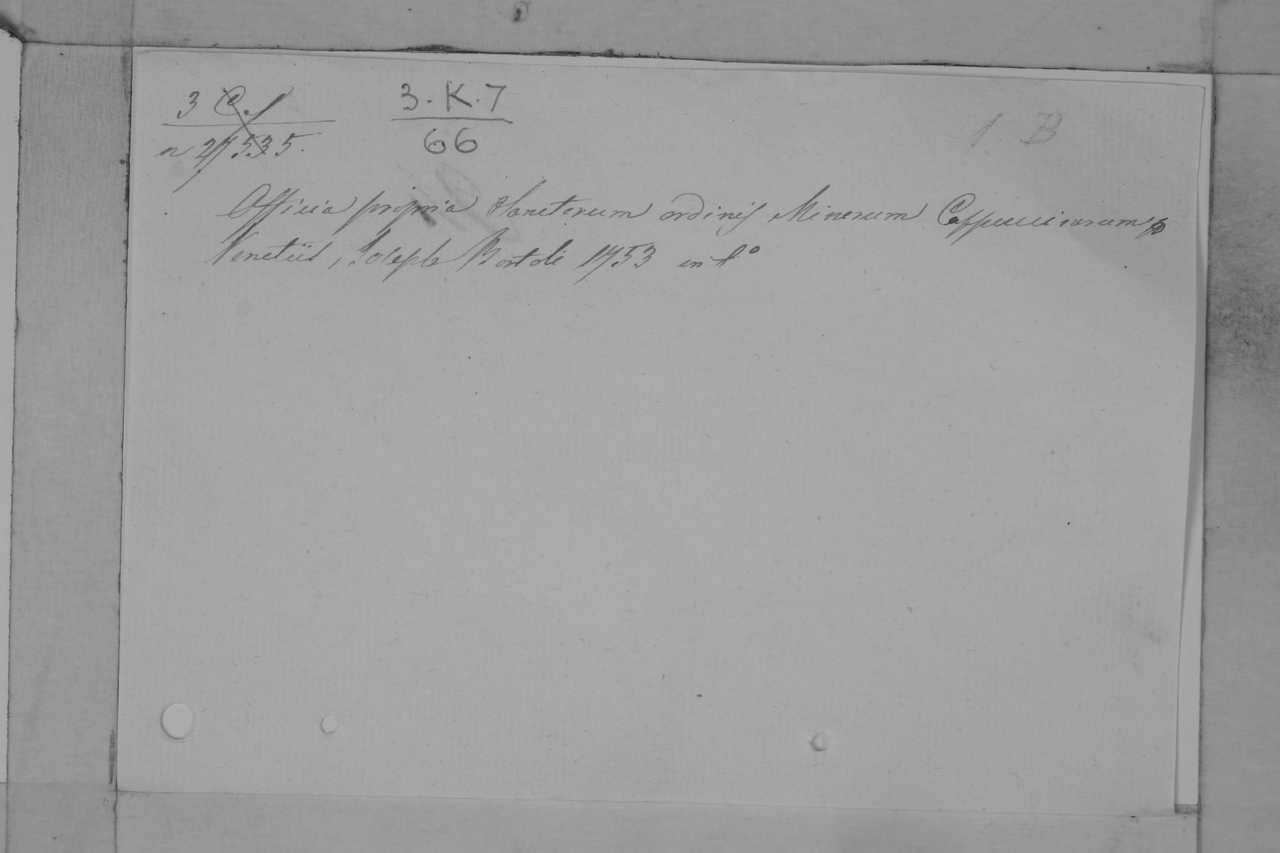 3 C. f
n 27535.
3. K. 7
66
1. B
Officia propria Sanctorum ordinis Minorum Cappucinorum
Venetiis, Joseph Bortoli 1753 in 4º